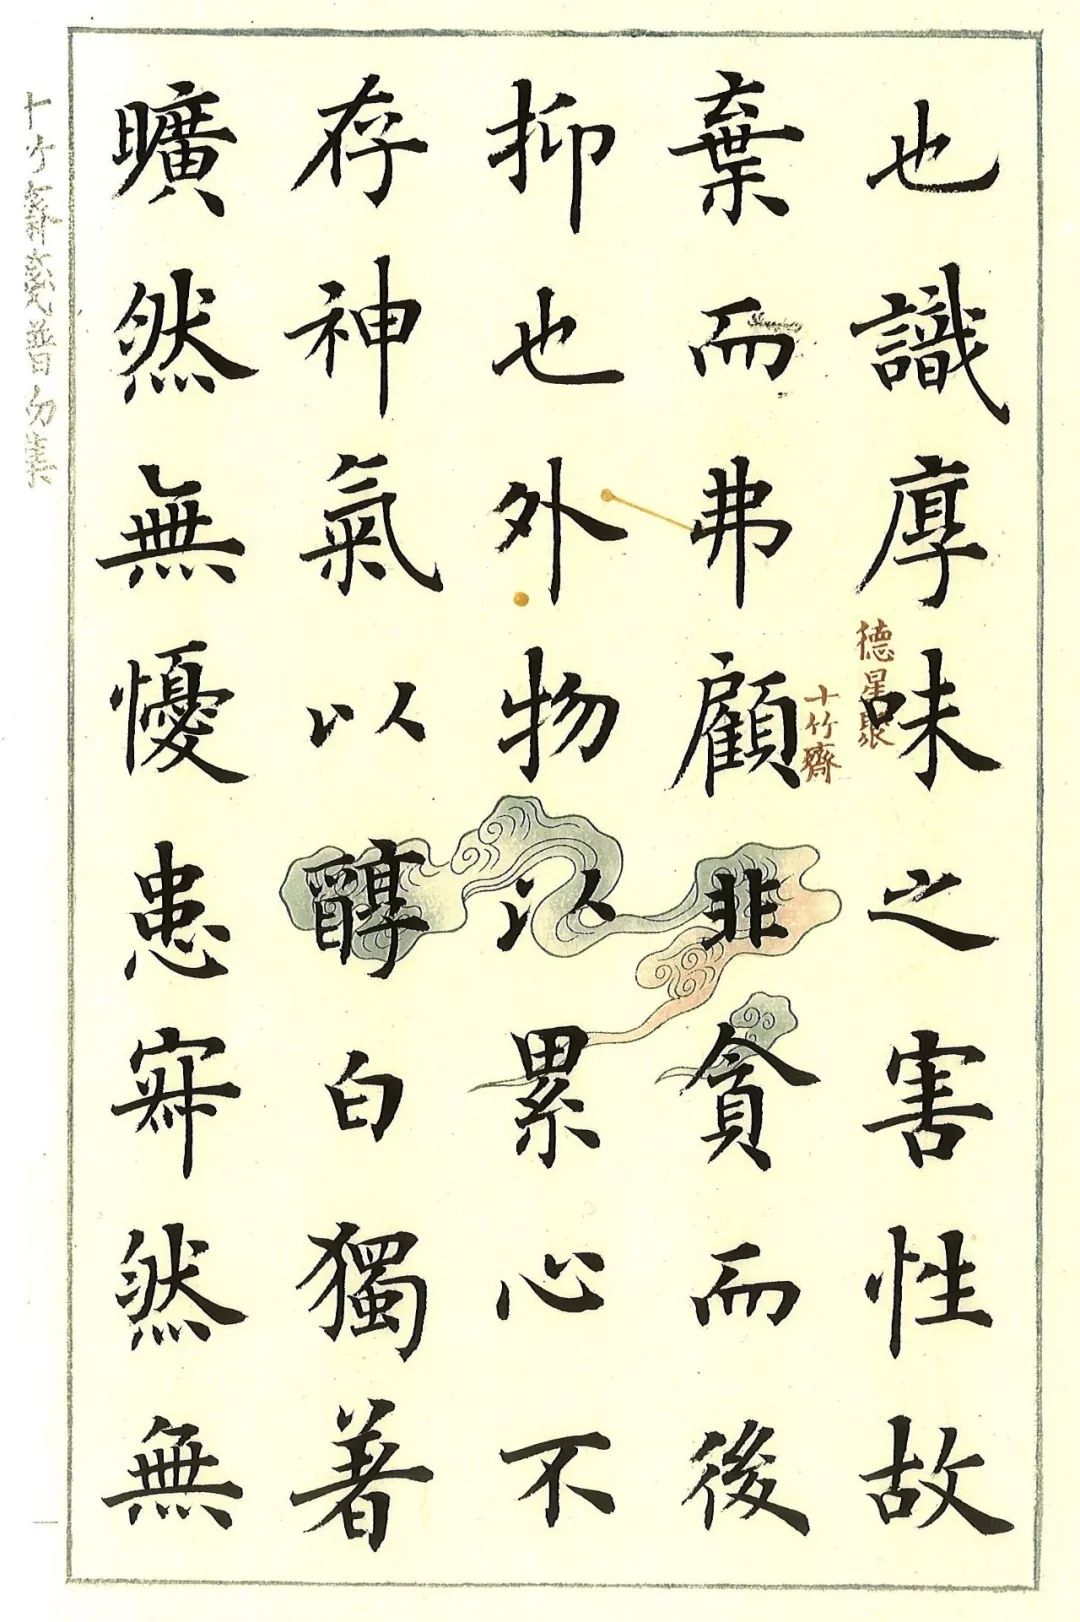 也識厚味之害性故
棄而弗顧非貪而後
抑也外物以累心不
存神氣以醇白獨著
曠然無憂患寂然無
德星聚
十竹齋